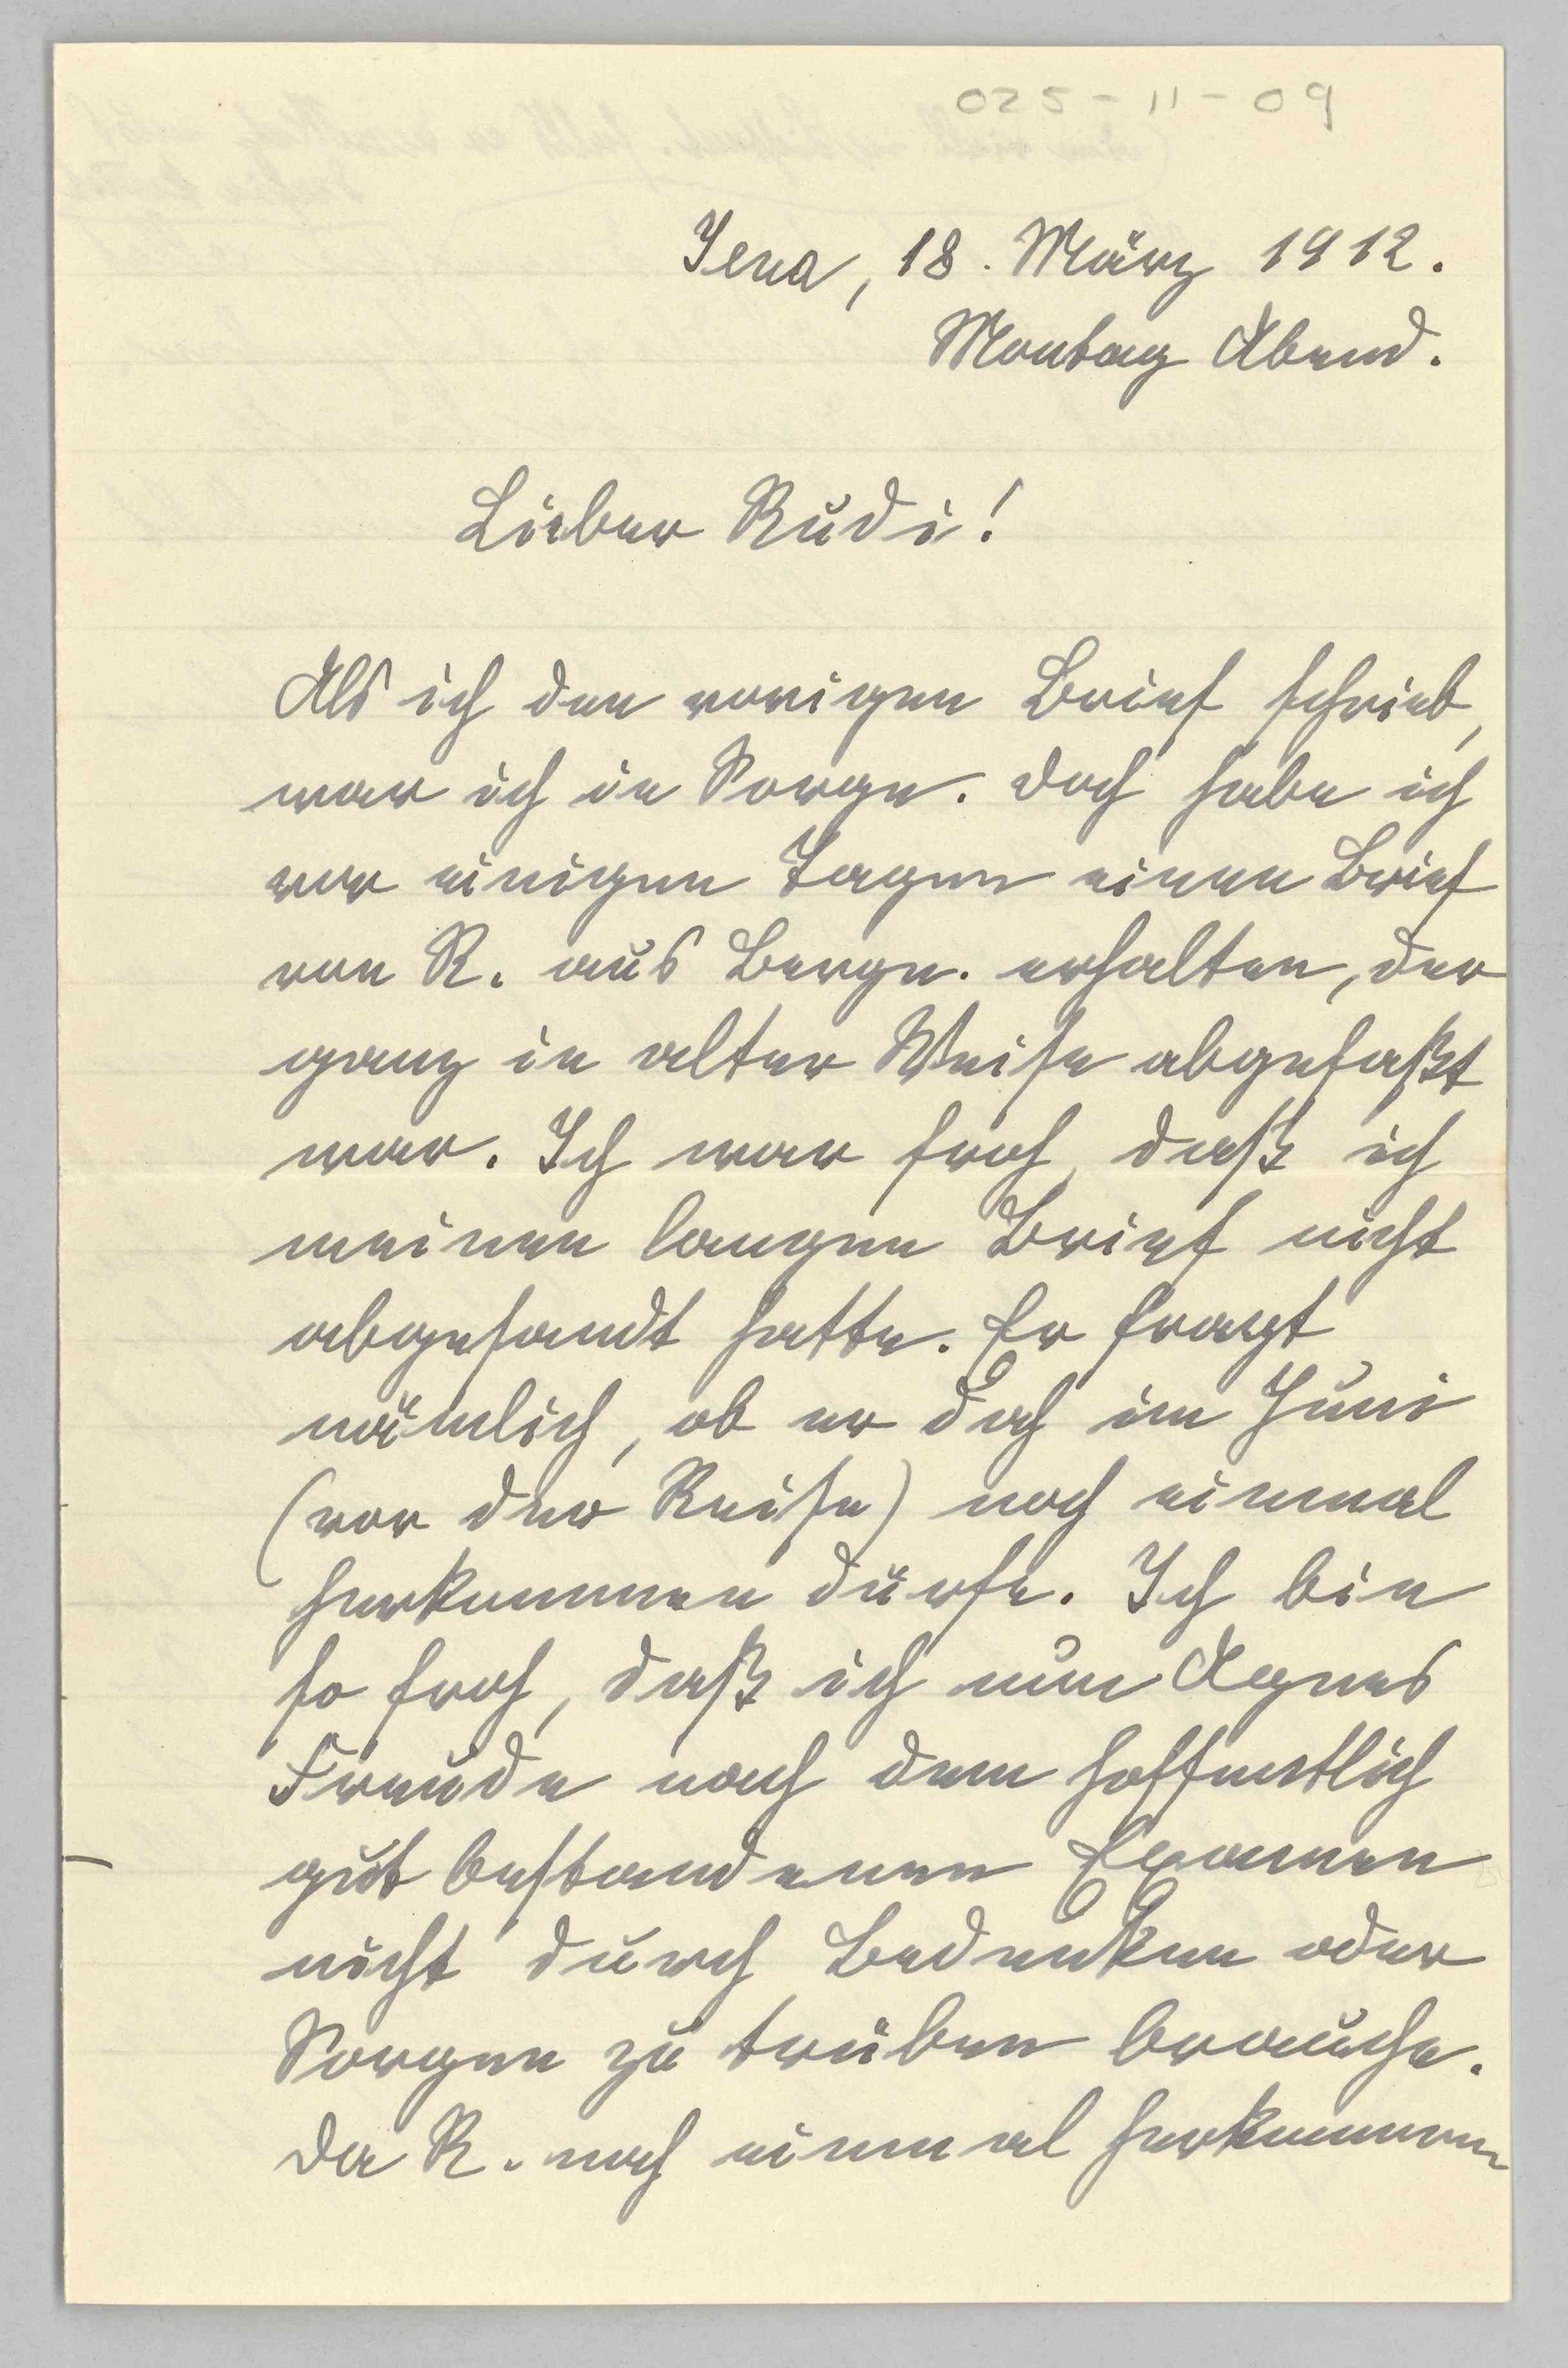 025-11-09
Jena, 18. März 1912.
Montag Abend.
Lieber Rudi!
Als ich den vorigen Brief schrieb,
war ich in Sorge. Doch habe ich
vor einigen Tagen einen Brief
von R. aus Berge. erhalten, der
ganz in alter Weise abgefaßt
war. Ich war froh, daß ich
meinen langen Brief nicht
abgesandt hatte. Er fragt
nämlich, ob er doch im Juni
(vor der Reise) noch einmal
herkommen dürfe. Ich bin
so froh, daß ich nun Agnes
Freude nach dem hoffentlich
gut bestandenen Examen
nicht durch Bedenken oder
Sorgen zu trüben brauche.
Da R. noch einmal herkommen